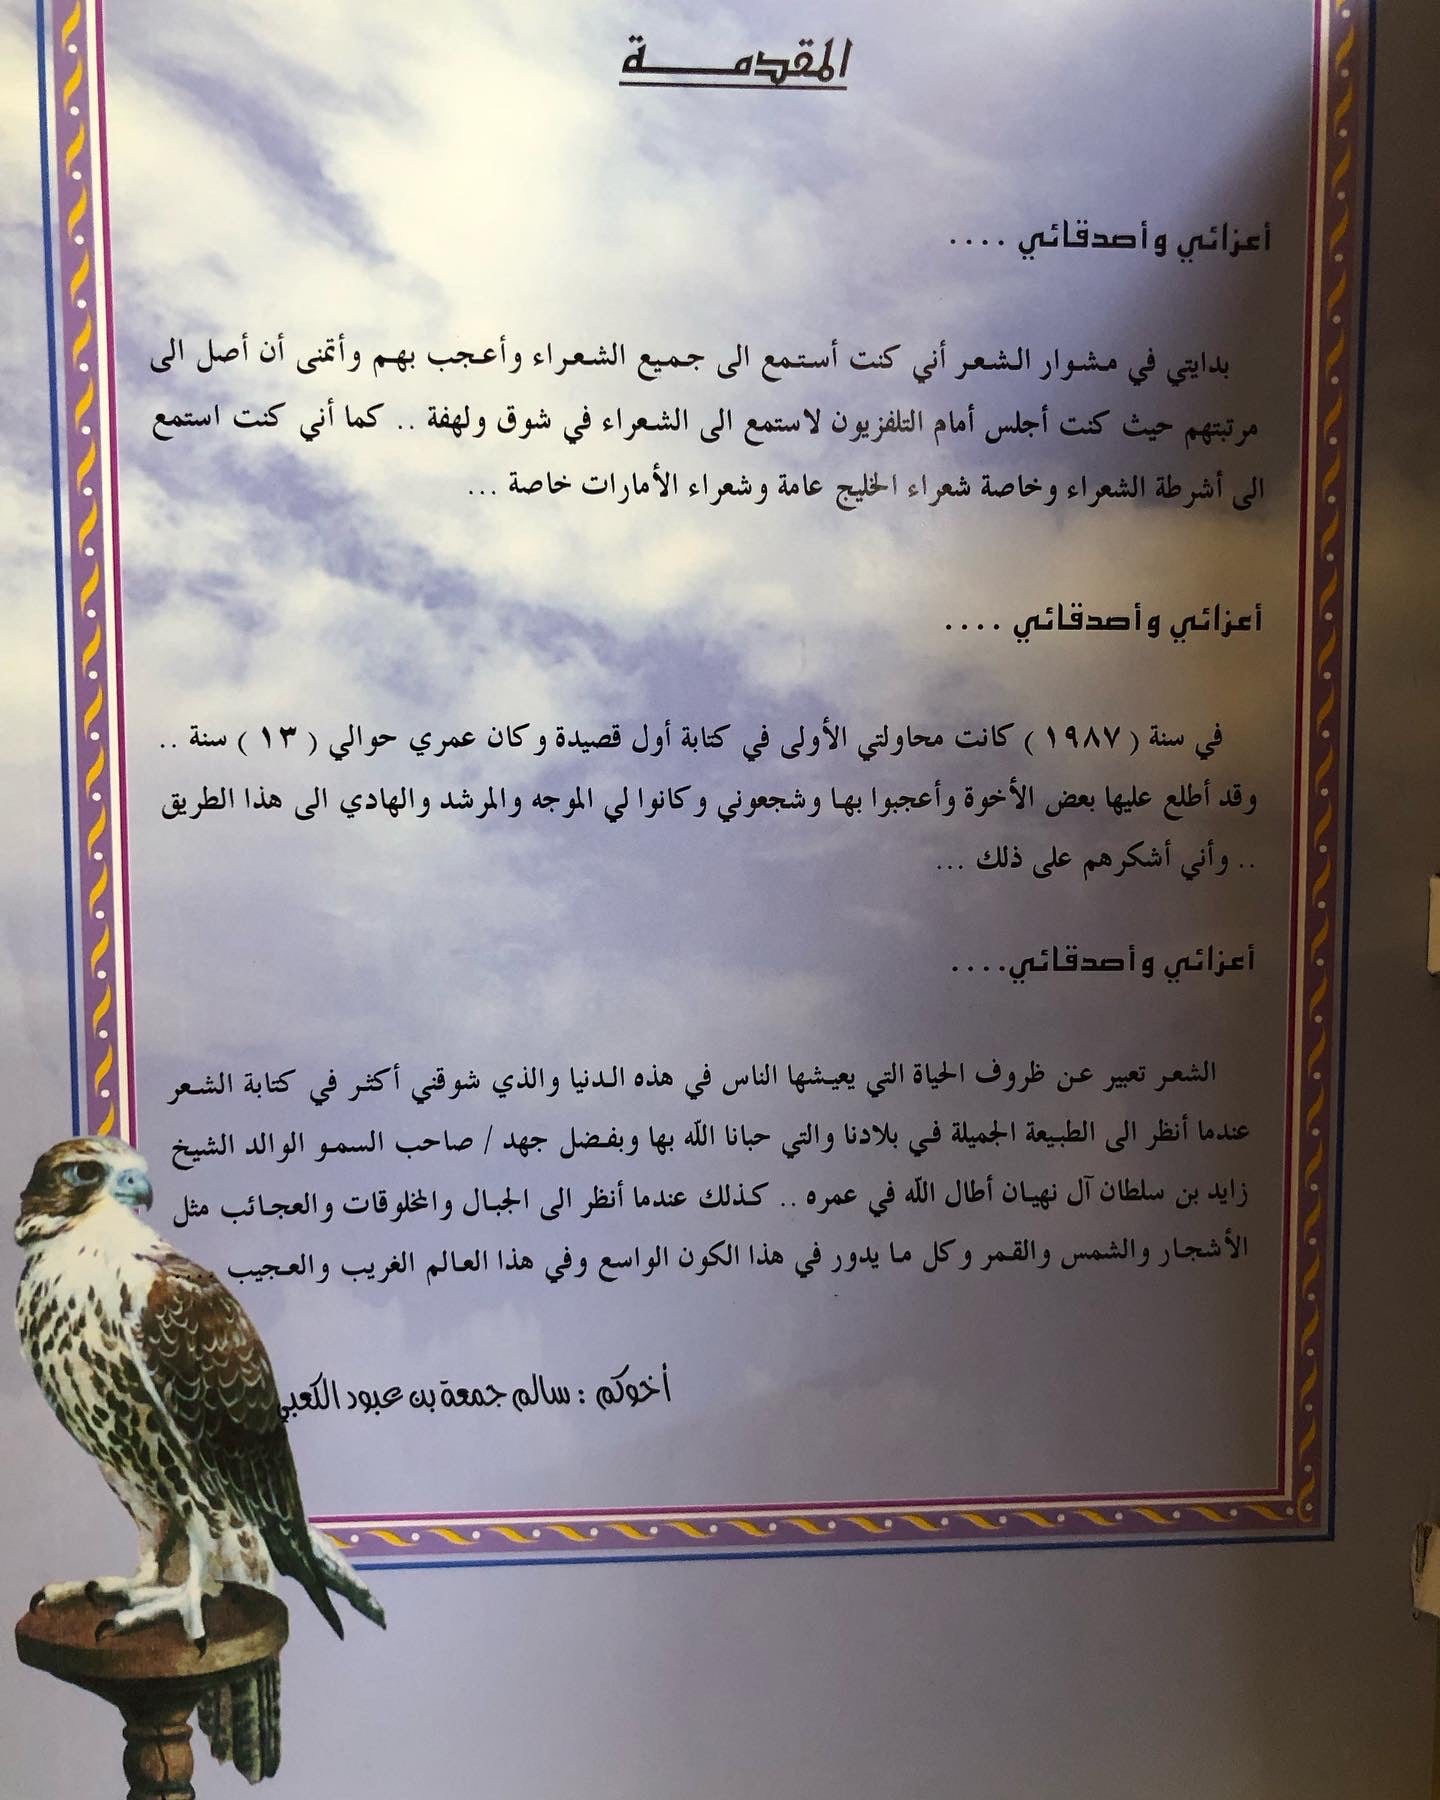 المقدمـــــة
أعزائي وأصدقائي ....
بدايتي في مشوار الشعر أني كنت أستمع الى جميع الشعراء وأعجب بهم وأتمنى أن أصل الى
مرتبتهم حيث كنت أجلس أمام التلفزيون لاستمع الى الشعراء في شوق ولهفة .. كما أني كنت استمع
الى أشرطة الشعراء وخاصة شعراء الخليج عامة وشعراء الأمارات خاصة ...
أعزائي وأصدقائي ....
في سنة ( ١٩٨٧ ) كانت محاولتي الأولى في كتابة أول قصيدة وكان عمري حوالي ( ١٣ ) سنة ..
وقد أطلع عليها بعض الأخوة وأعجبوا بها وشجعوني وكانوا لي الموجه والمرشد والهادي الى هذا الطريق
.. وأني أشكرهم على ذلك ...
أعزائي وأصدقائي....
الشعر تعبير عن ظروف الحياة التي يعيشها الناس في هذه الدنيا والذي شوقني أكثر في كتابة الشعر
عندما أنظر الى الطبيعة الجميلة في بلادنا والتي حبانا الله بها وبفضل جهد / صاحب السمو الوالد الشيخ
زايد بن سلطان آل نهيان أطال الله في عمره .. كذلك عندما أنظر الى الجبال والمخلوقات والعجائب مثل
الأشجار والشمس والقمر وكل ما يدور في هذا الكون الواسع وفي هذا العالم الغريب والعجيب ....
أخوكم : سالم جمعة بن عبود الكعبي